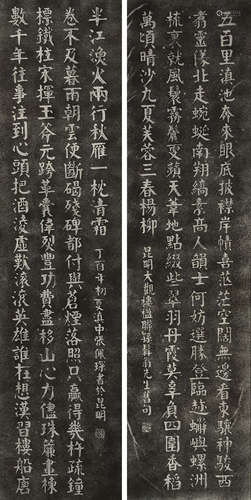 五百里滇池奔來眼底披襟岸幘喜茫茫空闊無邊看東驤神駿西
翥靈儀北走蜿蜒南翔縞素高人韻士何妨選勝登臨趁蟹嶼螺洲
梳裹就風鬟霧鬢更蘋天葦地點綴些翠羽丹霞莫辜負四圍香稻
萬頃晴沙九夏芙蓉三春楊柳
昆明大觀樓楹聯孫髯翁先生舊句
數千年往事注到心頭把酒淩虛歎滾滾英雄誰在想漢習樓船唐
標鐵柱宋揮玉斧元跨革囊偉烈豐功費盡移山心力儘珠簾畫棟
卷不及暮雨朝雲便斷碣殘碑都付與蒼煙落照只贏得幾杵疏鐘
半江漁火兩行秋雁一枕清霜
丁酉年初夏滇中張佩 書於昆明